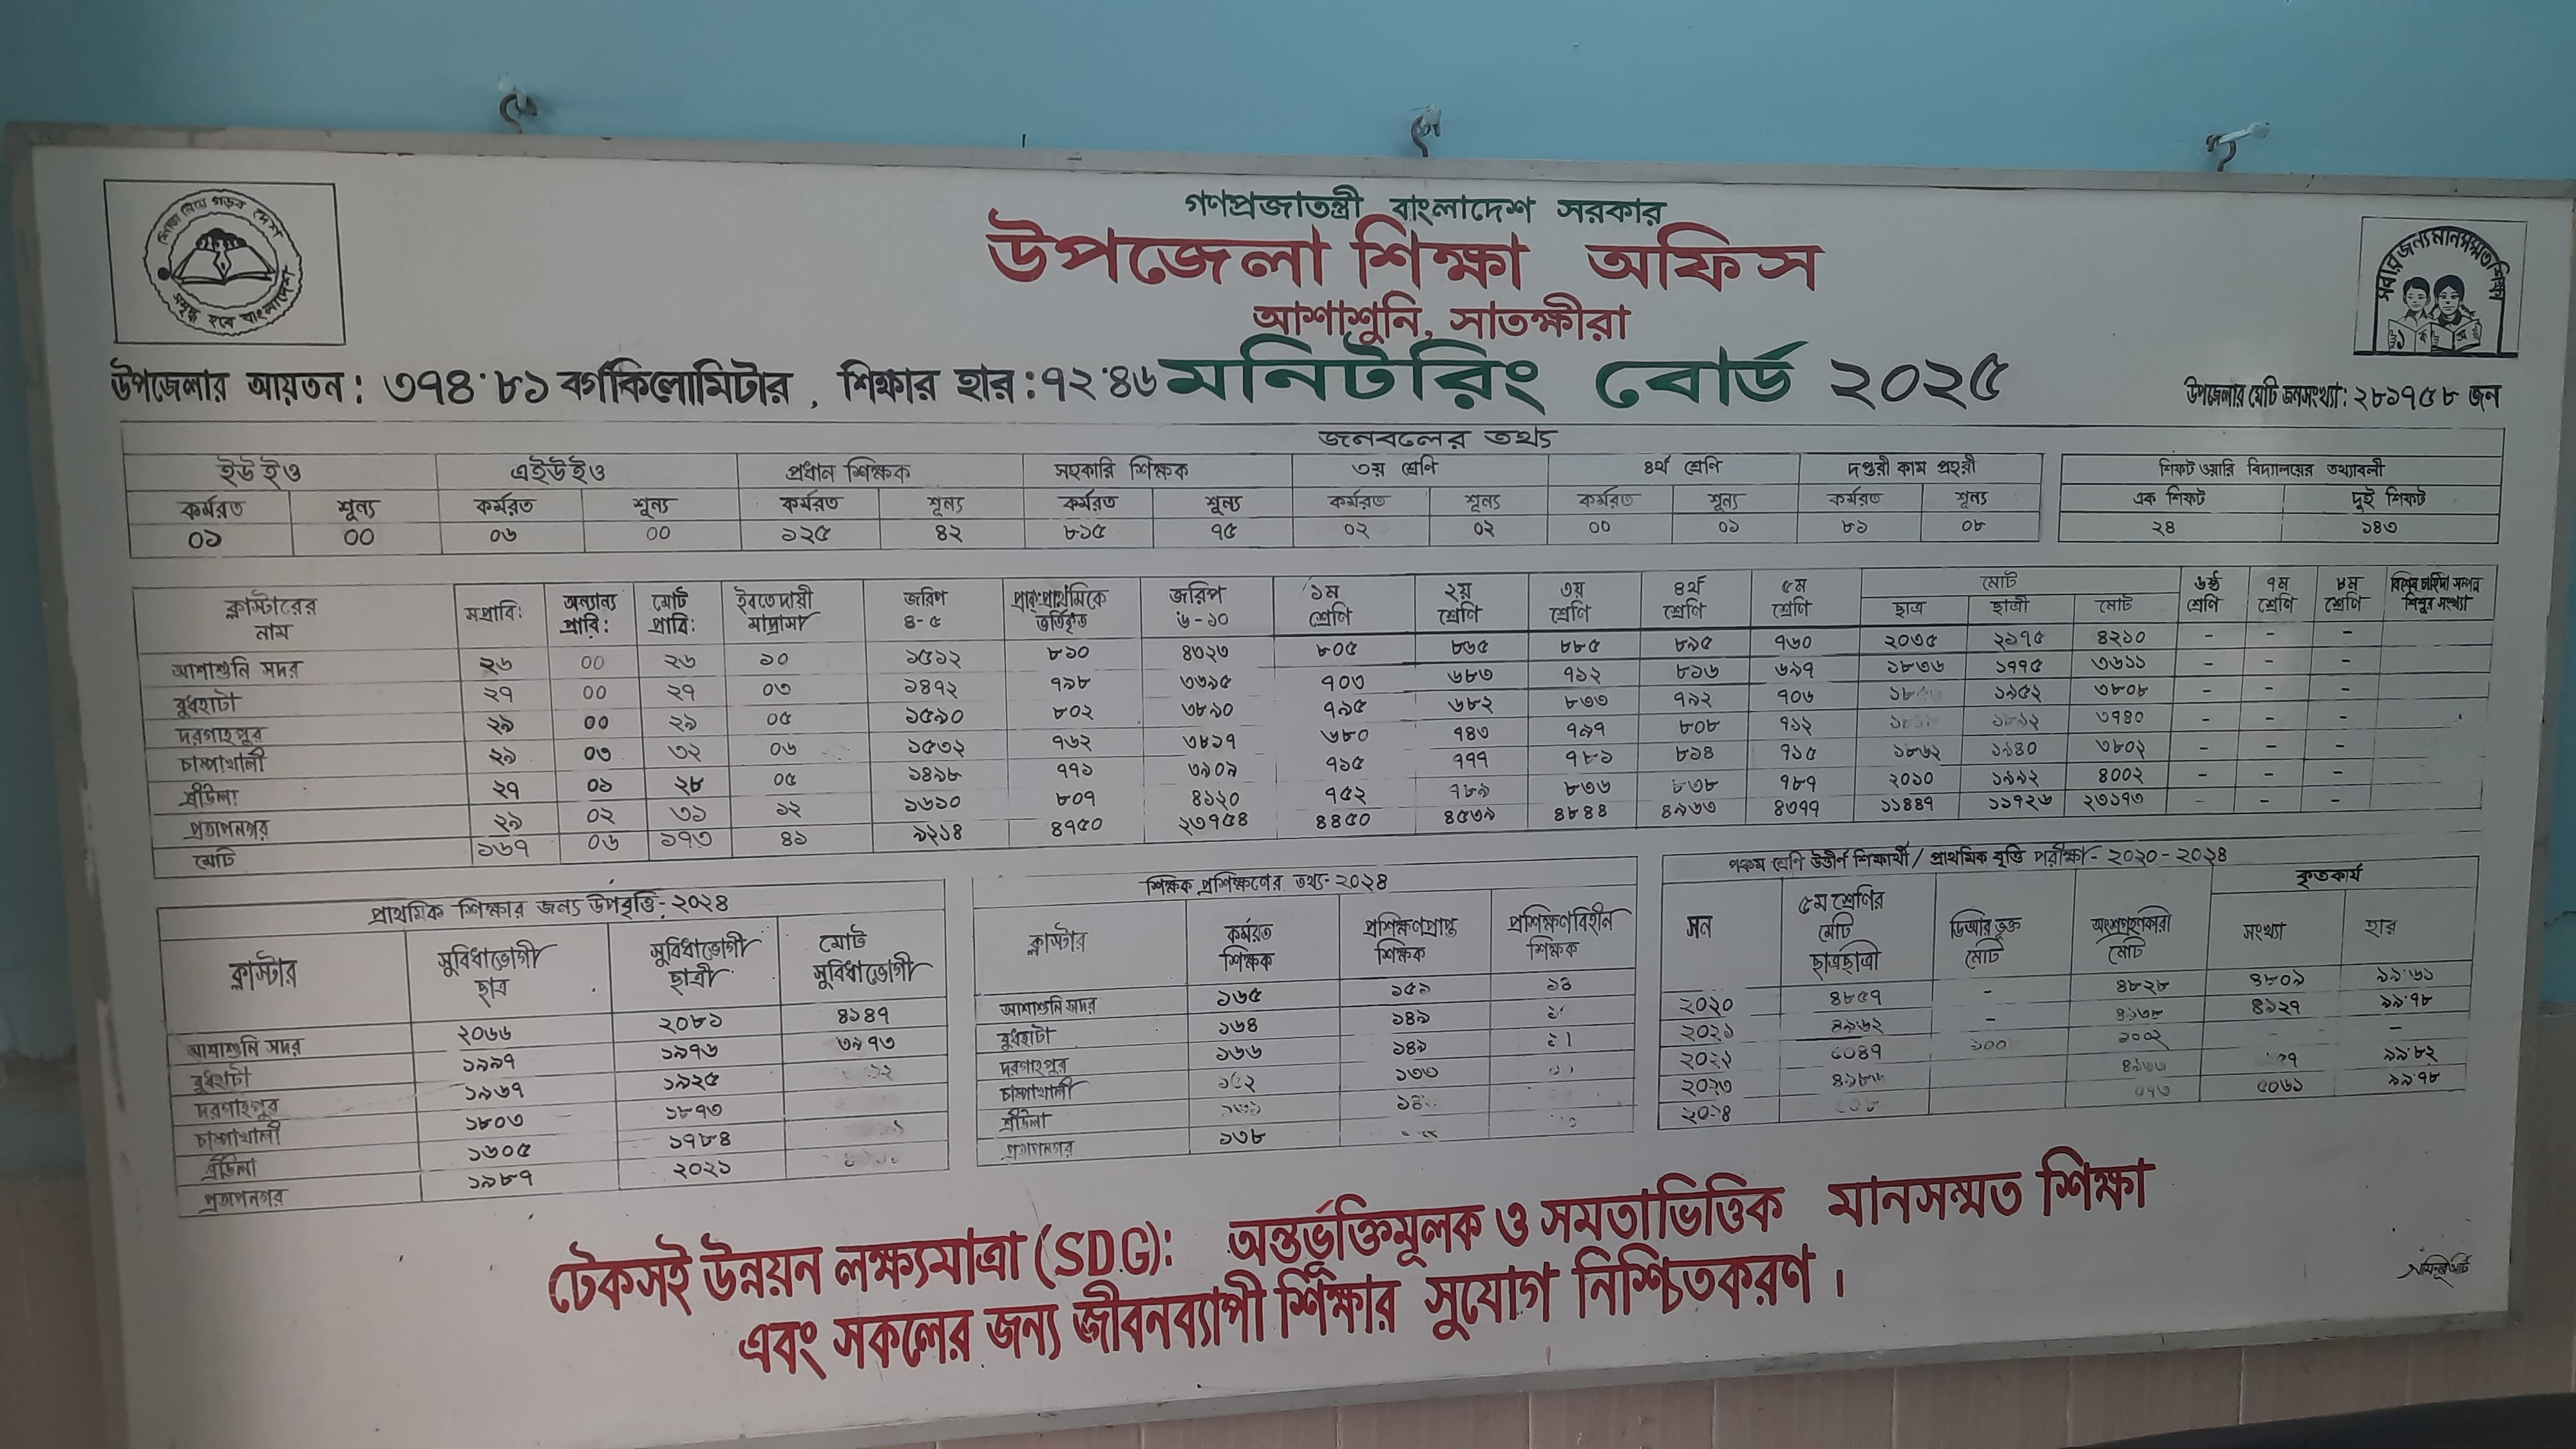 শিক্ষা নিয়ে গড়ব দেশ
সমৃদ্ধ হবে বাংলাদেশ
গণপ্রজাতন্ত্রী বাংলাদেশ সরকার
উপজেলা শিক্ষা অফিস
আশাশুনি, সাতক্ষীরা
সবার জন্য মানসম্মত শিক্ষা
উপজেলার আয়তন : ৩৭৪.৮১ বর্গকিলোমিটার , শিক্ষার হার : ৭২.৪৬ মনিটরিং বোর্ড ২০২৫ উপজেলার মোট জনসংখ্যা : ২৮১৭৫৮ জন
জনবলের তথ্য
ইউ ইও এইউইও প্রধান শিক্ষক সহকারি শিক্ষক ৩য় শ্রেণি ৪র্থ শ্রেণি দপ্তরী কাম প্রহরী শিফট ওয়ারি বিদ্যালয়ের তথ্যাবলী
কর্মরত শূন্য কর্মরত শূন্য কর্মরত শূন্য কর্মরত শূন্য কর্মরত শূন্য কর্মরত শূন্য কর্মরত শূন্য এক শিফট দুই শিফট
০১ ০০ ০৬ ০০ ১২৫ ৪২ ৮১৫ ৭৫ ০২ ০২ ০০ ০১ ৮১ ০৮ ২৪ ১৪৩
ক্লাস্টারের নাম সপ্রাবি: অন্যান্য প্রাবি: মোট প্রাবি: ইবতেদায়ী মাদ্রাসা জরিপ ৪-৫ প্রাক:প্রাথমিকে ভর্তিকৃত জরিপ ৬-১০ ১ম শ্রেণি ২য় শ্রেণি ৩য় শ্রেণি ৪র্থ শ্রেণি ৫ম শ্রেণি মোট ৬ষ্ঠ শ্রেণি ৭ম শ্রেণি ৮ম শ্রেণি বিশেষ চাহিদা সম্পন্ন শিশুর সংখ্যা
ছাত্র ছাত্রী মোট
আশাশুনি সদর ২৬ ০০ ২৬ ১০ ১৫১২ ৮১০ ৪৩২৩ ৮০৫ ৮৬৫ ৮৮৫ ৮৯৫ ৭৬০ ২০৩৫ ২১৭৫ ৪২১০ - - -
বুধহাটা ২৭ ০০ ২৭ ০৩ ১৪৭২ ৭৯৮ ৩৬৯৫ ৭০৩ ৬৮৩ ৭১২ ৮১৬ ৬৯৭ ১৮৩৬ ১৭৭৫ ৩৬১১ - - -
দরগাহপুর ২৯ ০০ ২৯ ০৫ ১৫৯০ ৮০২ ৩৮৯০ ৭৯৫ ৬৮২ ৮৩৩ ৭৯২ ৭০৬ ১৯৫২ ৩৮০৮ - - -
চাম্পাখালী ২৯ ০৩ ৩২ ০৬ ১৫৩২ ৭৬২ ৩৮১৭ ৬৮০ ৭৪৩ ৭৯৭ ৮০৮ ৭১২ ৩৭৪০ - - -
শ্রীউলা ২৭ ০১ ২৮ ০৫ ১৪৯৮ ৭৭১ ৩৯০৯ ৭১৫ ৭৭৭ ৭৮১ ৮১৪ ৭১৫ ১৮৬২ ১৯৪০ ৩৮০২ - - -
প্রতাপনগর ২৯ ০২ ৩১ ১২ ১৬১০ ৮০৭ ৪১২০ ৭৫২ ৭৮৯ ৮৩৬ ৮৩৮ ৭৮৭ ২০১০ ১৯৯২ ৪০০২ - - -
মোট ১৬৭ ০৬ ১৭৩ ৪১ ৯২১৪ ৪৭৫০ ২৩৭৫৪ ৪৪৫০ ৪৫৩৯ ৪৮৪৪ ৪৯৬৩ ৪৩৭৭ ১১৪৪৭ ১১৭২৬ ২৩১৭৩ - - -
প্রাথমিক শিক্ষার জন্য উপবৃত্তি-২০২৪
ক্লাস্টার সুবিধাভোগী ছাত্র সুবিধাভোগী ছাত্রী মোট সুবিধাভোগী
আশাশুনি সদর ২০৬৬ ২০৮১ ৪১৪৭
বুধহাটা ১৯৯৭ ১৯৭৬ ৩৯৭৩
দরগাহপুর ১৯৬৭ ১৯২৫
চাম্পাখালী ১৮০৩ ১৮৭৩
শ্রীউলা ১৬০৫ ১৭৮৪
প্রতাপনগর ১৯৮৭ ২০২১
শিক্ষক প্রশিক্ষণের তথ্য-২০২৪
ক্লাস্টার কর্মরত শিক্ষক প্রশিক্ষণপ্রাপ্ত শিক্ষক প্রশিক্ষণবিহীন শিক্ষক
আশাশুনি সদর ১৬৫ ১৫১ ১৪
বুধহাটা ১৬৪ ১৪৯
দরগাহপুর ১৬৬ ১৪৯
চাম্পাখালী ১৩৩
শ্রীউলা
প্রতাপনগর ১৩৮
পঞ্চম শ্রেণি উত্তীর্ন শিক্ষার্থী / প্রাথমিক বৃত্তি পরীক্ষা-২০২০-২০২৪
সন ৫ম শ্রেণির মোট ছাত্রছাত্রী ডিআর ভুক্ত মোট অংশগ্রহণকারী মোট কৃতকার্য
সংখ্যা হার
২০২০ ৪৮৫৭ - ৪৮২৮ ৪৮০৯ ৯৯.৬১
২০২১ ৪৯৬২ - ৪৯৩৮ ৪৯২৭ ৯৯.৭৮
২০২২ ১০০২ -
২০২৩ ৯৯.৮২
২০২৪ ৫০৬১ ৯৯.৭৮
টেকসই উন্নয়ন লক্ষ্যমাত্রা (SDG): অন্তর্ভূক্তিমূলক ও সমতাভিত্তিক মানসম্মত শিক্ষা
এবং সকলের জন্য জীবনব্যাপী শিক্ষার সুযোগ নিশ্চিতকরণ ।